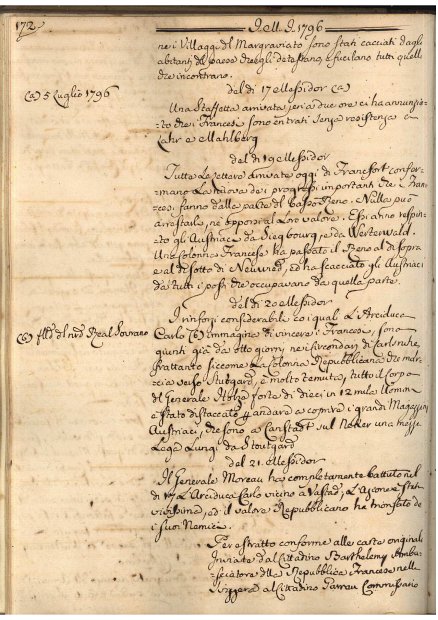 172
I. M. I. 1796
ne i Villaggi del Margraviato sono stati cacciati dagli
abitanti del paese che gli detestano, e fucilano tutti quelli
che incontrano.
del di 17 Messidor (a)
(a) 5 Luglio 1796
Una Staffetta arrivata jeri a due ore ci ha annunzia-
-to che i Francesi sono entrati senza resistenza a
Lahr e Mahlberg
del di 19 Messidor
Tutte le lettere arrivate oggi di Francfort confer-
-mano la nuova dei progressi importanti che i Fran-
-cesi fanno dalla parte del basso Reno. Nulla può
arrestarli, nè opporsi al Loro valore. Essi anno respin-
-to gli Austriaci da Siegbourg, e da Westerwald.
Una Colonna Francese ha passato il Reno al di sopra
e al di sotto di Neuwied, ed ha scacciato gli Austriaci
da tutti i posti che occupavano da quella parte.
del di 20 Messidor
I rinforzi considerabile co i quali L'Arciduca
(b) Real Sovrano
Carlo (b) immagina di vincere i Francesi, sono
giunti già da otto giorni, ne i Circondarj di Carlsruhe,
frattanto siccome la Colonna Repubblicana che mar-
-cia verso Stutgard, è molto temuta, tutto il Corpo
del Generale Hotze forte di dieci in 12 mila Uomini
è stato distaccato p andare a coprire i grandi Magazzeni
Austriaci, che sono a Canstadt sul Neker una mezza
Lega Lungi da Stoutgard
del di 21 Messidor
Il Generale Moreau ha completamente battuto nel
di 17 L'Arciduca Carlo vicino a Rastad, L'Azione è stata
vivissima, ed il valore Repubblicano ha trionfato de
i suoi Nemici.
Per estratto conforme alle carte originali
Inviate dal Cittadino Barthelemy Amba-
-sciatore della Repubblica Francese nella
Svizzera al Cittadino Garrau Commissario